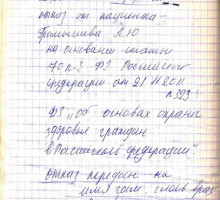 отказ от пациента
на основании статьи
70 п.3 ФЗ Российской
федерации от 21 11 2011
N 323
ФЗ "об основах охраны
здоровья граждан
в Российской федерации".
отказ передан на
имя глав врач